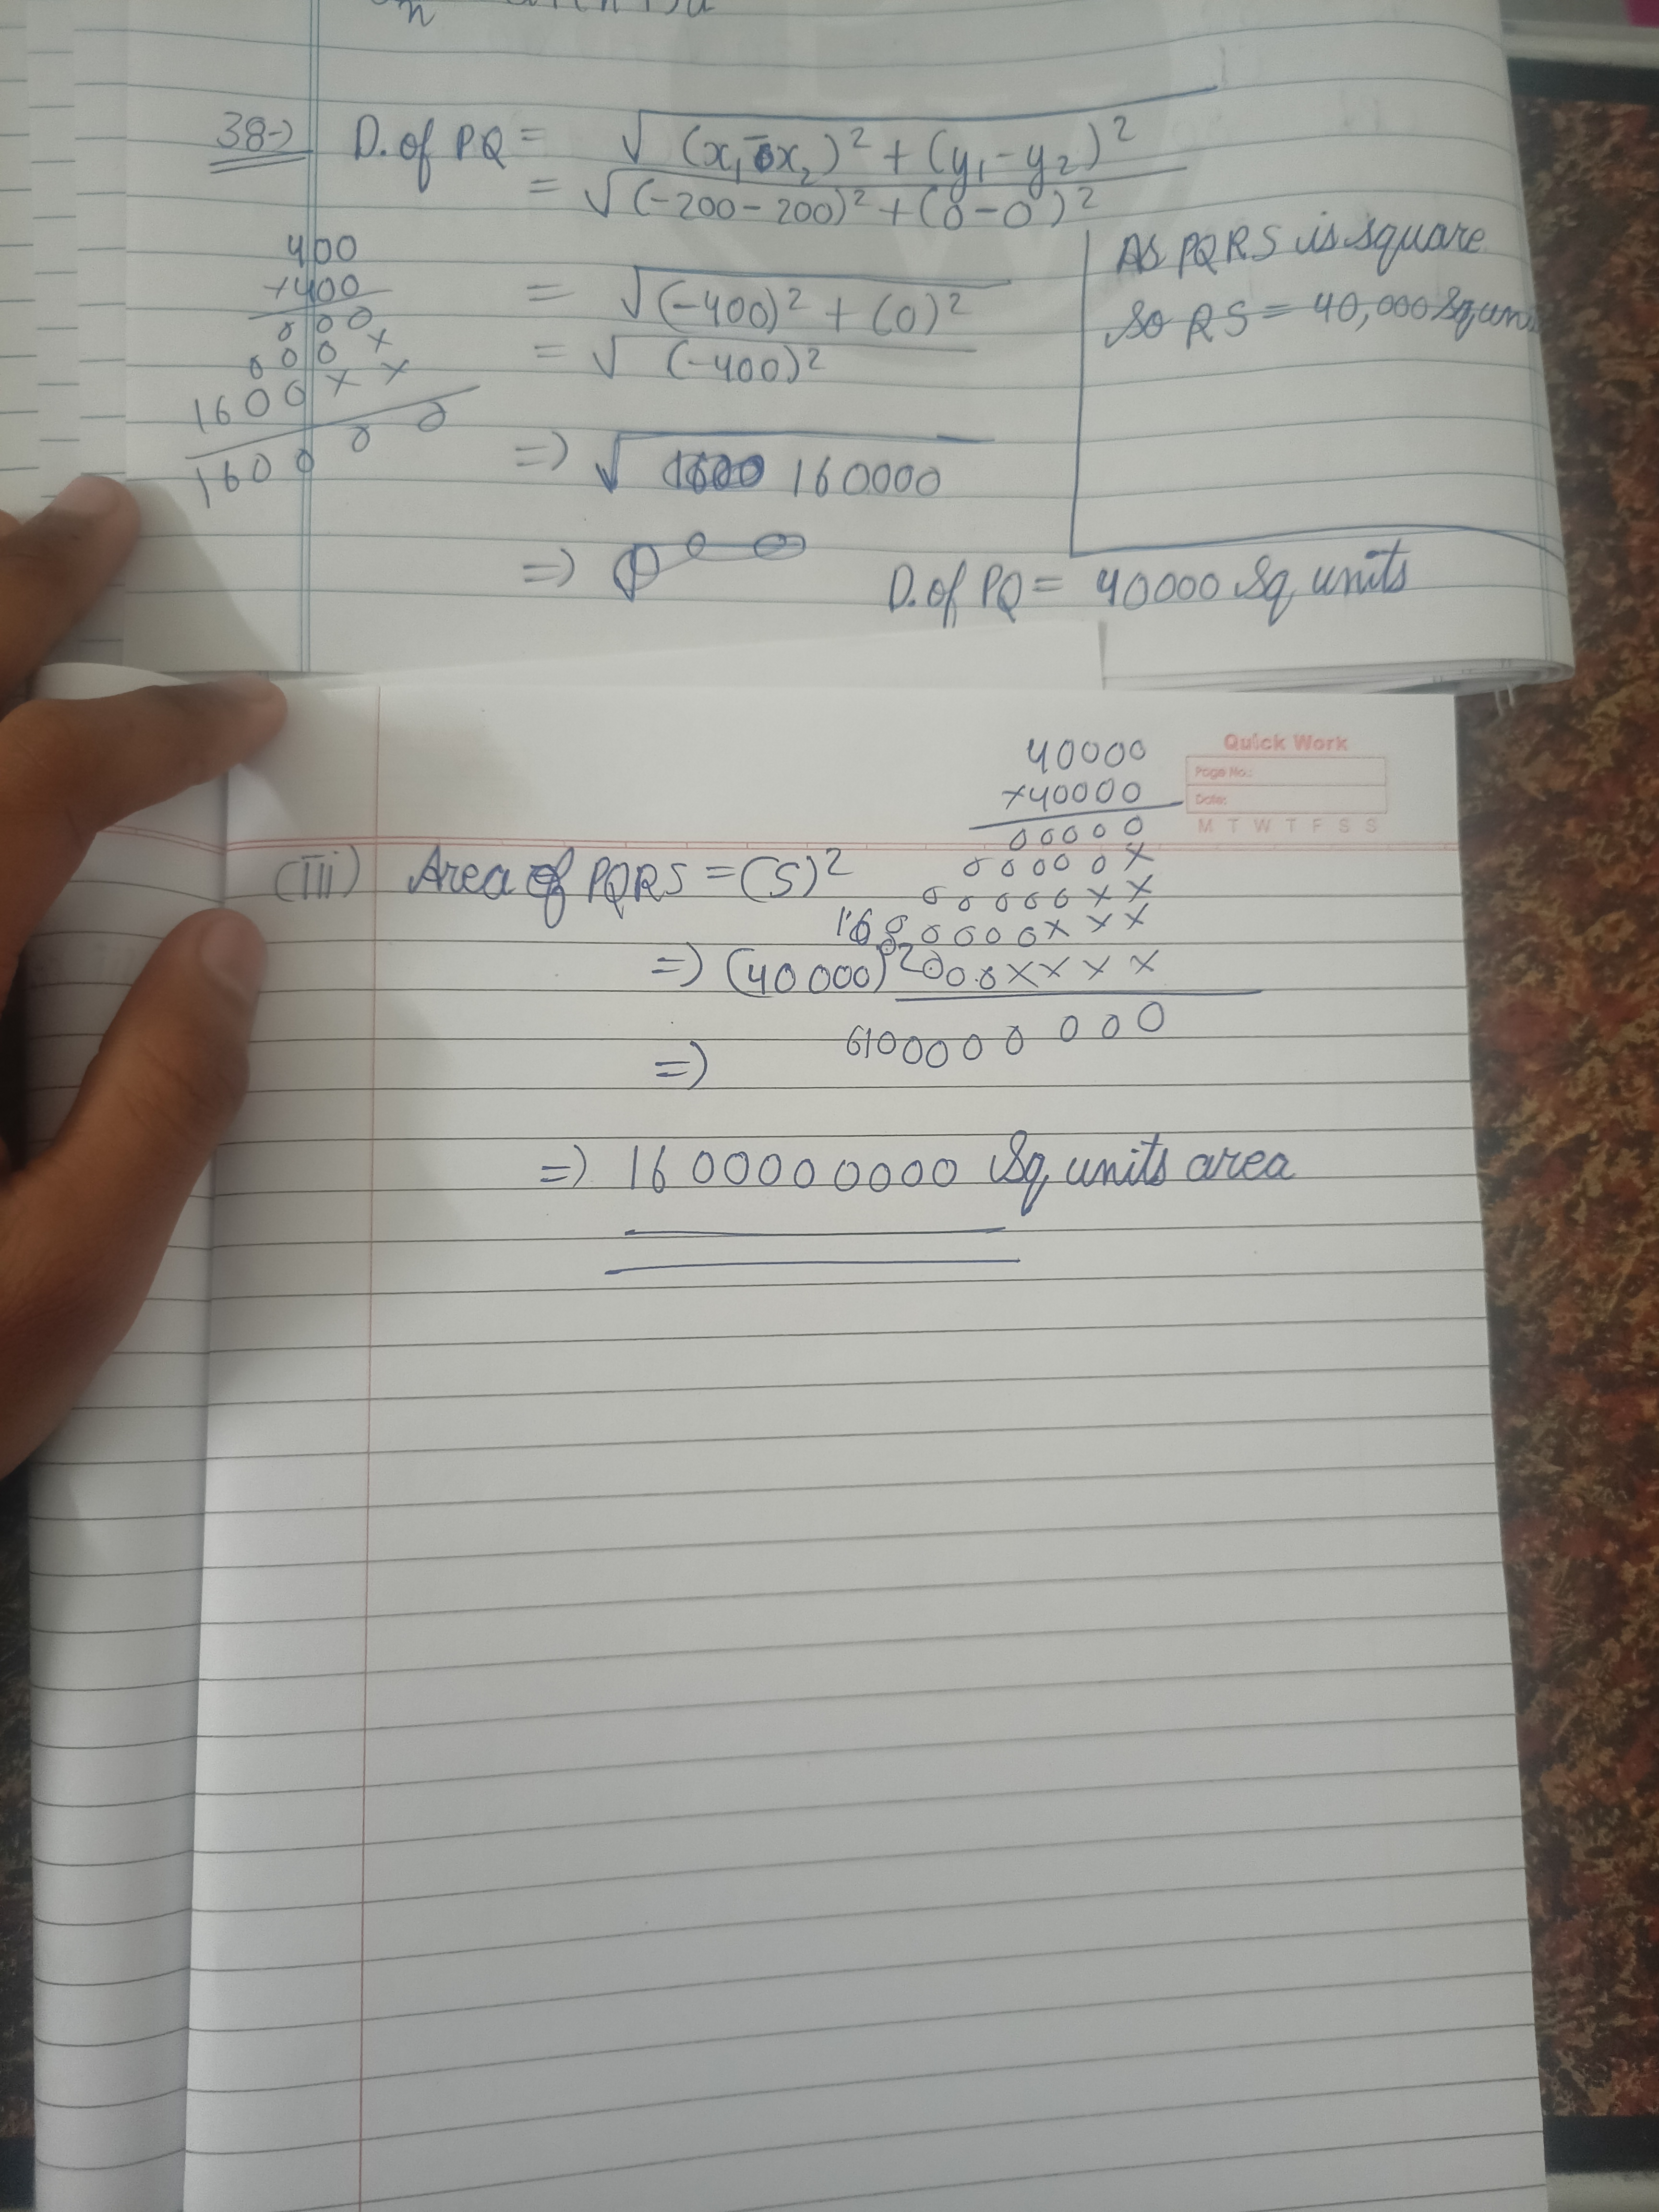 38→) D. of PQ = √(x₁-x₂)² + (y₁-y₂)²
= √(-200-200)² + (0-0)²
400
×400
000
000×
1600××
160000
= √(-400)² + (0)²
= √(-400)²
=> √160000
=>
As PQRS is square
So RS = 40,000 Sq
D. of PQ = 40000 Sq units
Quick Work
Page No.:
Date:
M T W T F S S
40000
×40000
00000
00000×
00000××
00000×××
××××
000
(iii) Area of PQRS = (S)²
=> (40000)²
=>
=> 1600000000 Sq units area